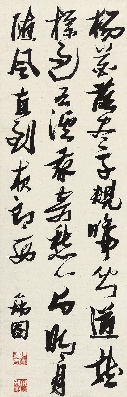 楊花落盡子規啼聞道龍
標過五溪我寄愁心与明月
隨風直到夜郎西
瑞圖